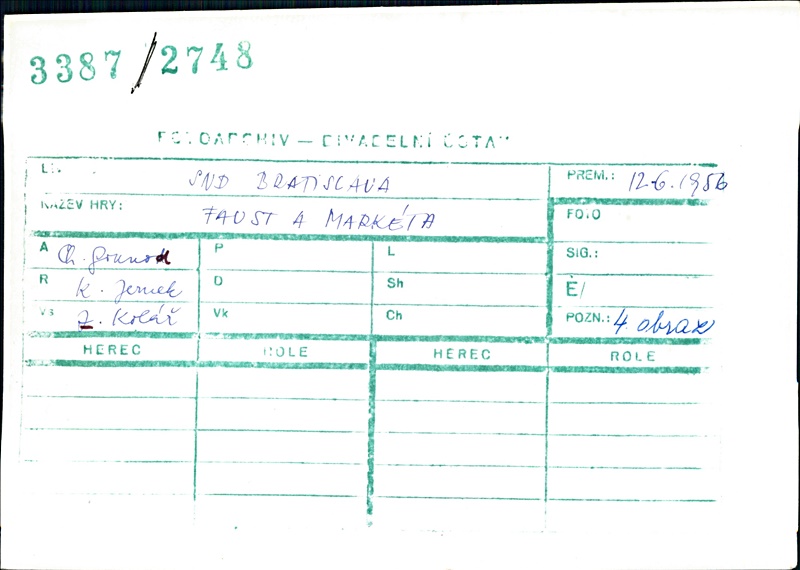 3387/2748
FOTOARCHIV — DIVADELNÍ ÚSTAV
SND BRATISLAVA
PREM.: 12.6.1956
NÁZEV HRY: FAUST A MARKÉTA
FOTO
A Ch. Gounod P L SIG.:
R K. Jernek D Sh
Vs J. Kolář Vk Ch POZN.: 4 obraz
HEREC ROLE HEREC ROLE